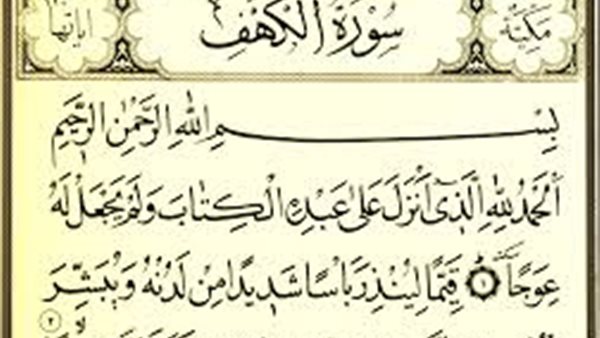 مكية سورة الكهف اياتها
بِسْمِ اللّٰهِ الرَّحْمٰنِ الرَّحِيمِ
اَلْحَمْدُ لِلّٰهِ الَّذٖٓى اَنْزَلَ عَلٰى عَبْدِهِ الْكِتَابَ وَلَمْ يَجْعَلْ لَهُ
عِوَجًا ١ قَيِّمًا لِيُنْذِرَ بَاْسًا شَدٖيدًا مِنْ لَدُنْهُ وَيُبَشِّرَ
٢